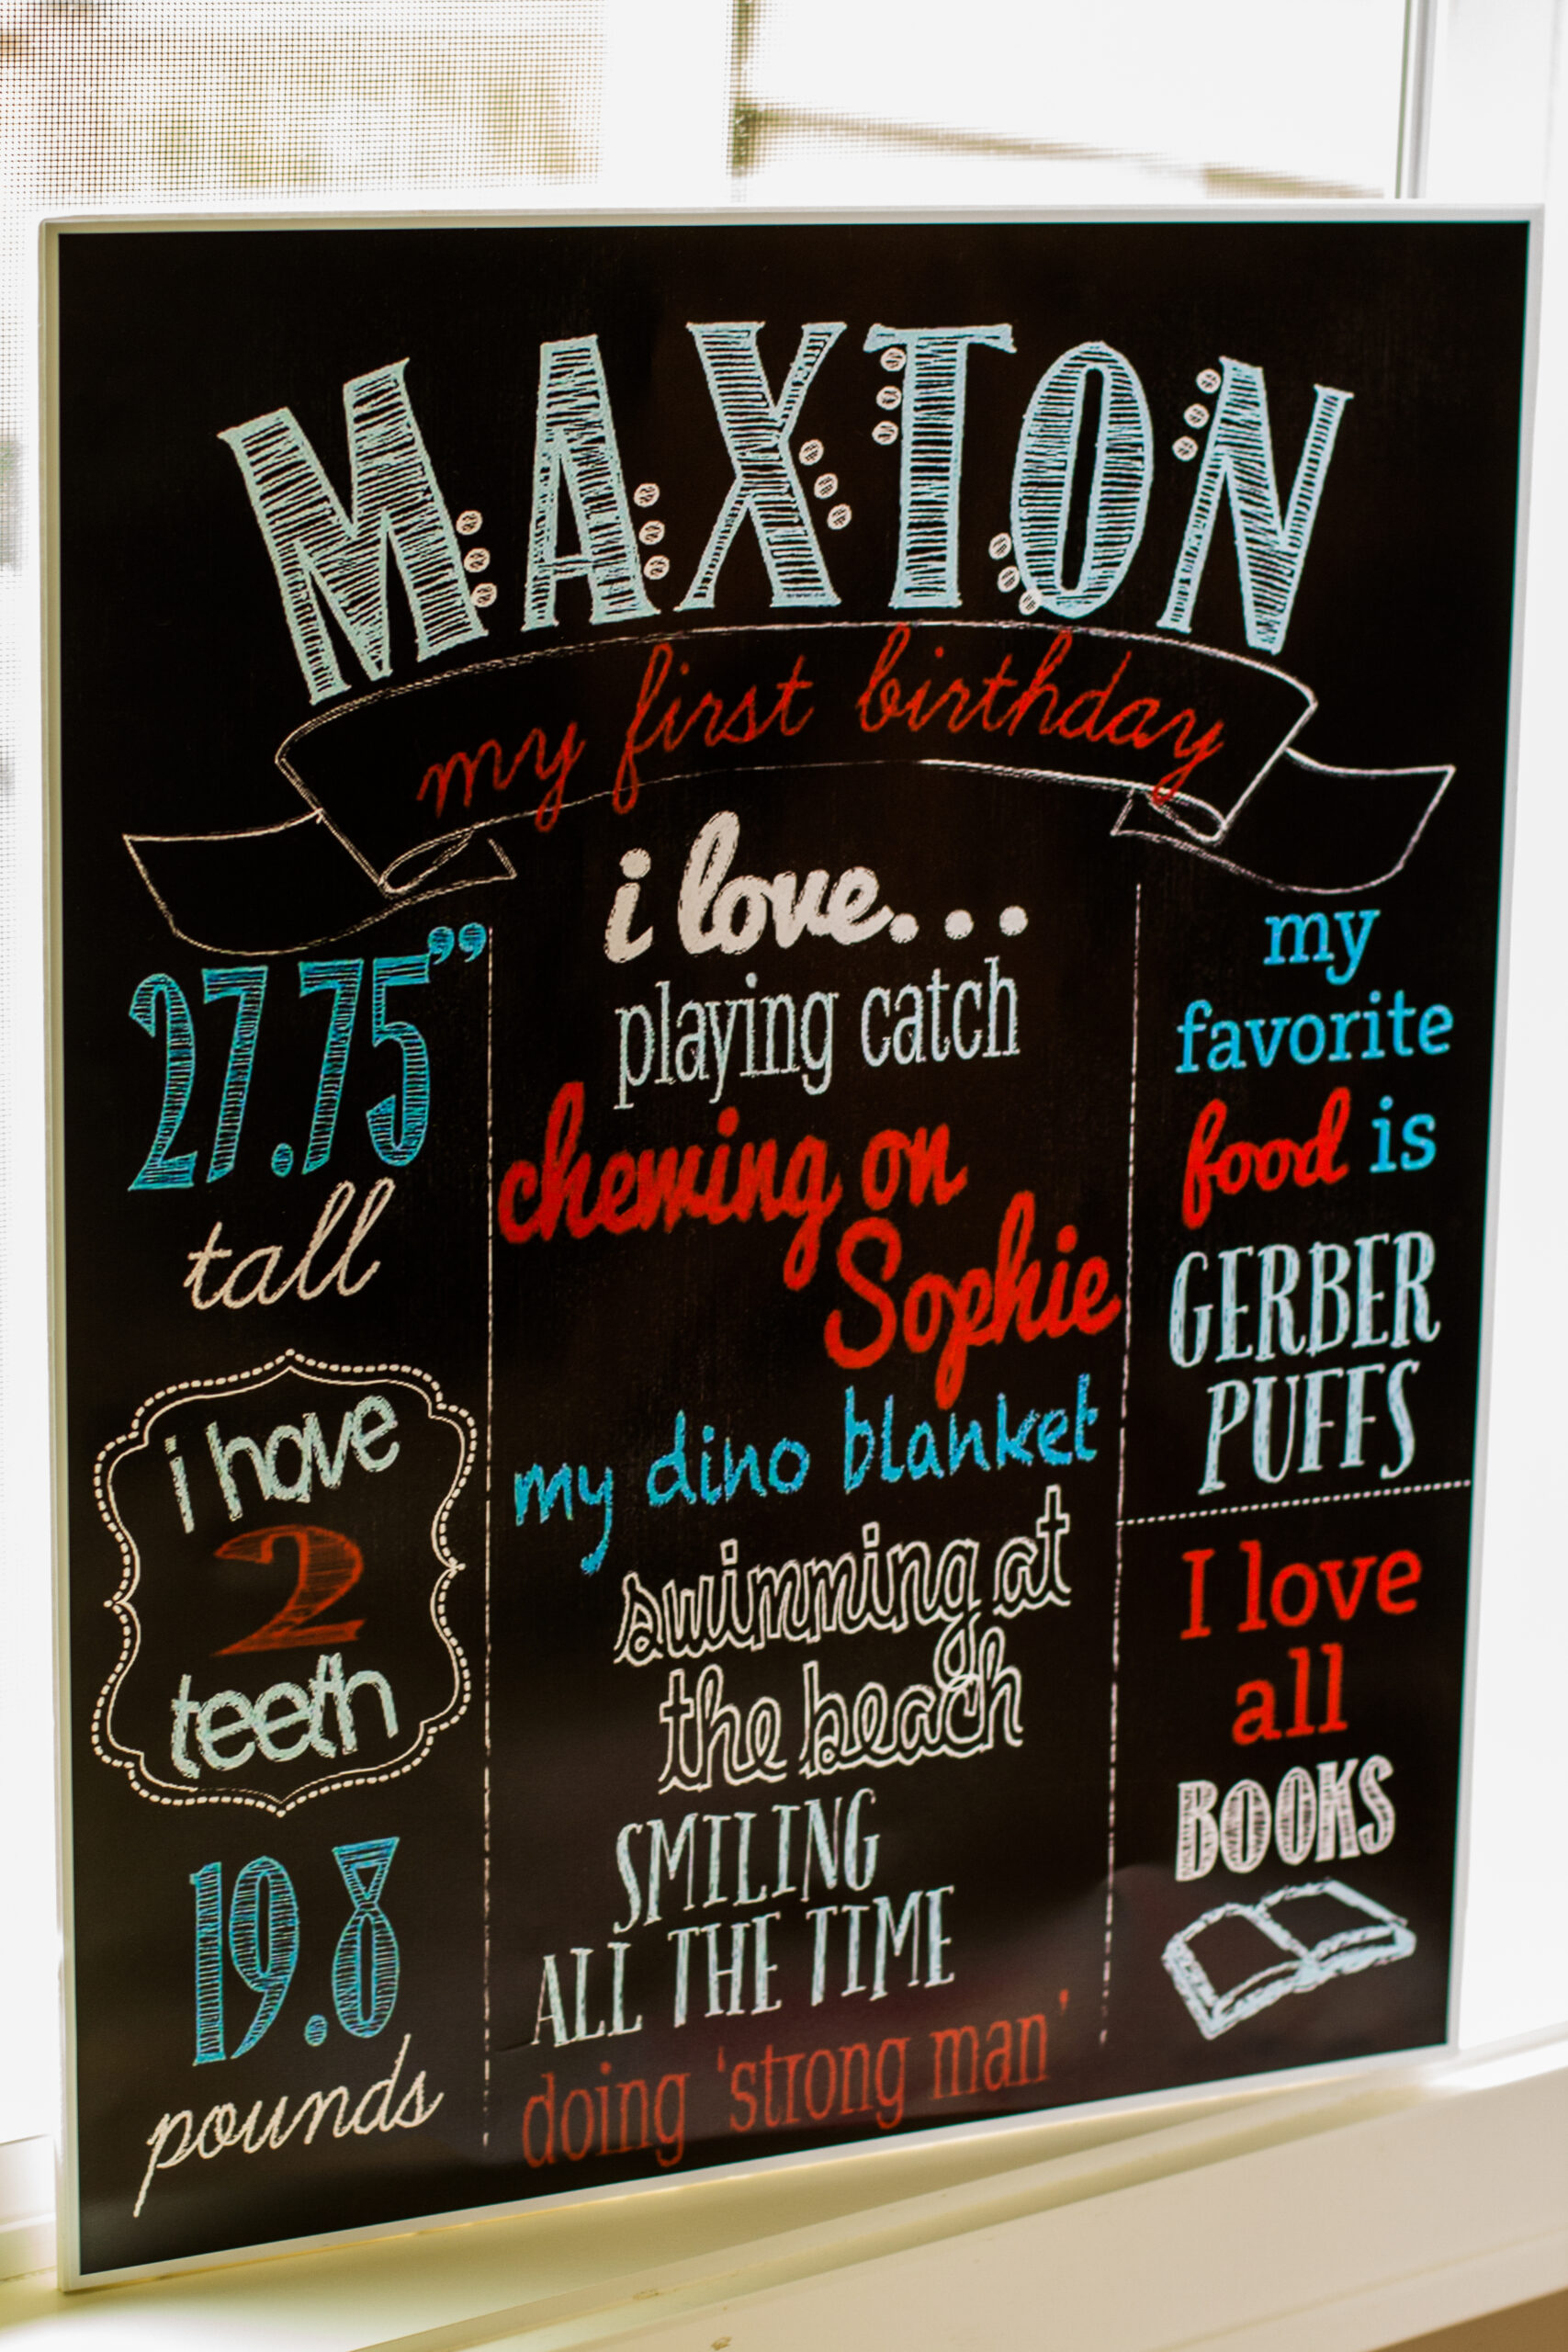 MAXTON
my first birthday
27.75”
tall
i have
2
teeth
19.8
pounds
i love...
playing catch
chewing on
Sophie
my dino blanket
swimming at
the beach
SMILING
ALL THE TIME
doing 'strong man'
my
favorite
food is
GERBER
PUFFS
I love
all
BOOKS